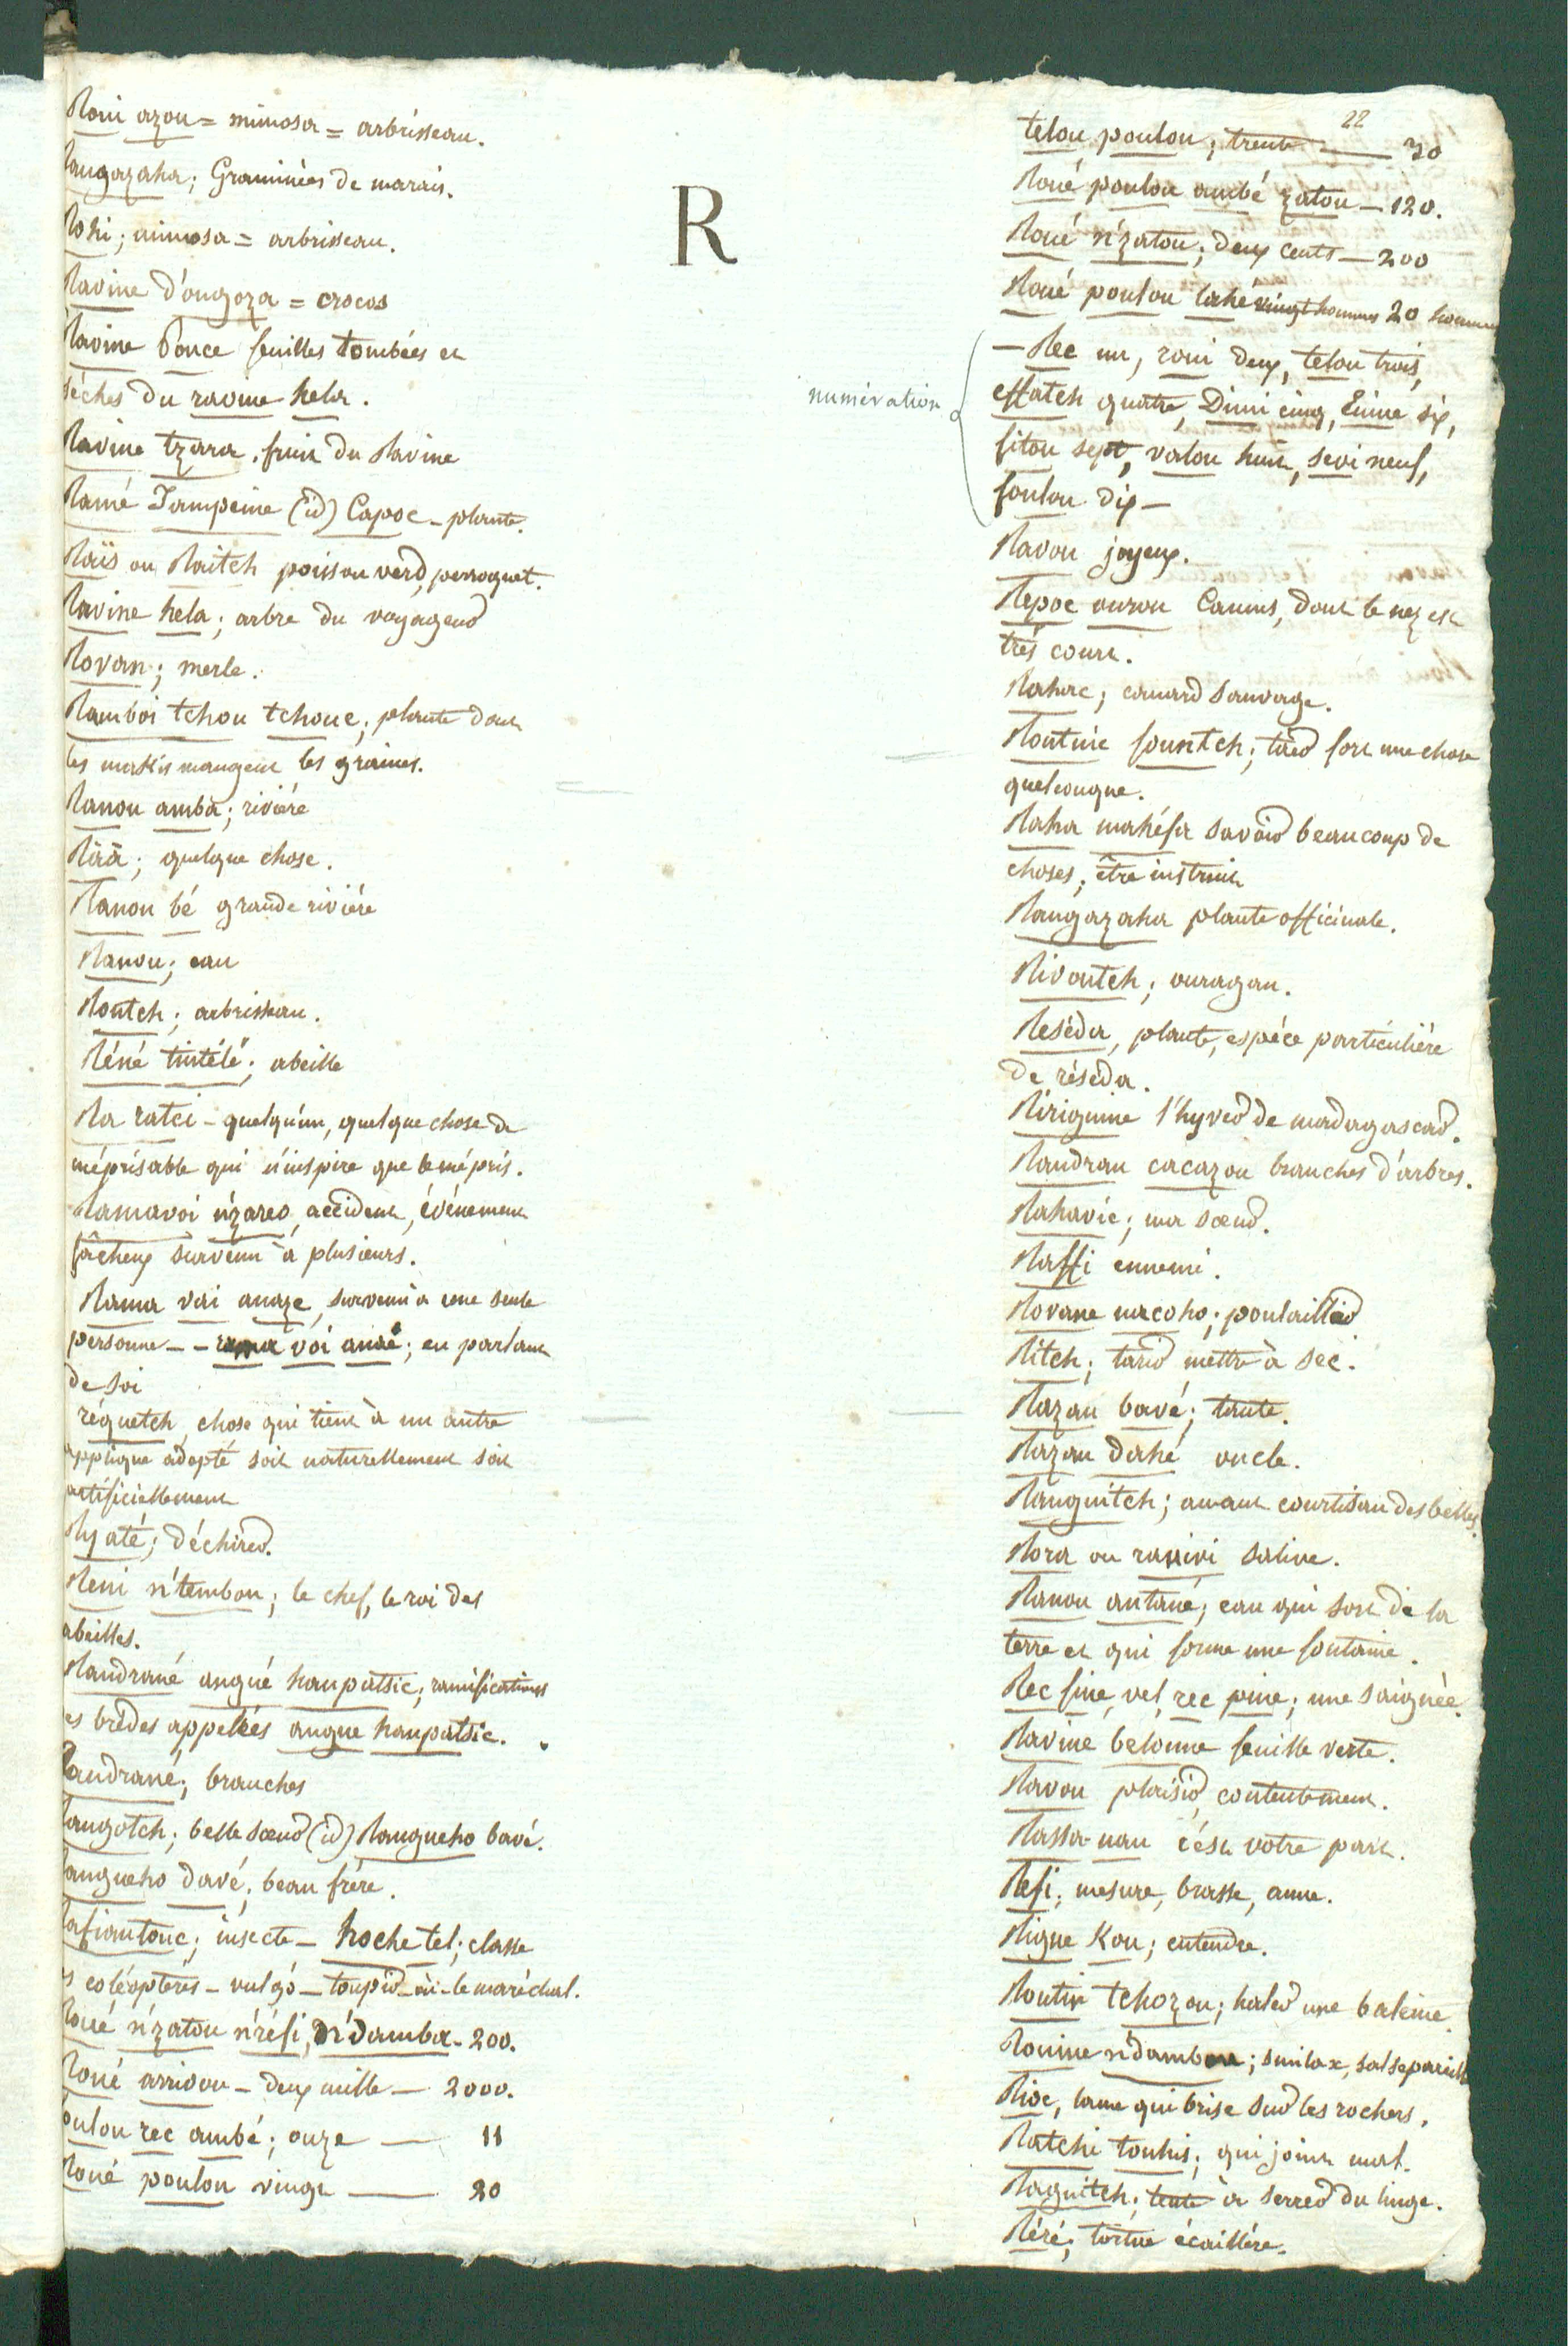 R
Roui azou = mimosa = arbrisseau.
Rangazaha; Graminées de marais.
Rohi; mimosa = arbrisseau.
Ravine d'ongoza = crocos
Ravine bonce feuilles tombées et
séches du ravine hela.
Ravine tzara. fruit du Ravine
Ramé Tampeine (id) Capoc - plante.
Raïs ou Raitch poisson verd, perroquet.
Ravine hela; arbre du voyageur
Rovan; merle.
Ramboi tchou tchouc; plante dont
les makis mangent les graines.
Ranou amba; riviére
Raa; quelque chose.
Ranou bé grande riviére
Ranou; eau
Rontch; arbrisseau.
Réné tintélé; abeille
Ra ratci - quelqu'un, quelque chose de
méprisable qui n'inspire que le mépris.
Ramavoi n'zareo, accident, événement
fâcheux survenu à plusieurs.
Rama voi anaze, survenu à une seule
personne - - rama voi anaé; en parlant
de soi
réquetch chose qui tient à un autre
applique adapté soit naturellement soit
artificiellement
Ry até; déchirer.
Reni n'tembou; le chef, le roi des
abeilles.
Randrané angué hanpatsic; ramifications
es brédes appellées angue hanpatsic.
Randrané; branches
Rangotch; belle soeur (id) Rangueho bavé.
Rangueho davé; beau frére.
Rafiantouc; insecte - hochetel; classe
s coléoptéres - vulgò - toupie - ou - le maréchal.
Roué n'zatou n'réfi, Dé damba - 200.
Roué arrivou - deux mille - 2000.
Poulou rec ambé; onze — 11
Roué poulou vingt — 20
22
telou poulou; trente — 30
Roué poulou ambé zatou - 120.
Roué n'zatou; deux cents - 200
Roué poulou lahé vingt hommes 20 hommes
numération
- Rec un, roui deux, telou trois,
effatch quatre, Dimi cinq, Enine six,
fitou sept, valou huit, sevi neuf,
foulou dix -
Ravou joyeux.
Repoc ourou Camus, dont le nez est
très court.
Rahac; canard sauvage.
Rontuic fountch; tirer fort une chose
quelconque.
Raha mahéfa savoir beaucoup de
choses; être instruit
Rangazaha plante officinale.
Rivoutch; ouragan.
Reséda, plante, espéce particuliére
de réséda.
Ririguine l'hyver de madagascar.
Randran cacazou branches d'arbres.
Rahavic; ma soeur.
Raffi ennemi.
Rovane macoho; poulaillier
Ritch; tarir mettre à sec.
Razan bavé; tante.
Razan dahé oncle.
Ranguitch; amant courtisan des belles.
Rora ou ranivi salive.
Ranou antané; eau qui sort de la
terre et qui forme une fontaine.
Rec fine, vel, rec pine; une saignée.
Ravine belonne feuille verte.
Ravou plaisir, contentement.
Rassa-nau c'est votre part.
Refi; mesure, brasse, aune.
Rigue Kou; entendre.
Routin tchozou; haler une baleine.
Rouine n'dambou; smilax, salsepareille
Rioc, lame qui brise sur les rochers.
Ratchi touhis; qui joint mal.
Raguitch; tente à serrer du linge.
Réré; tortue écaillére.